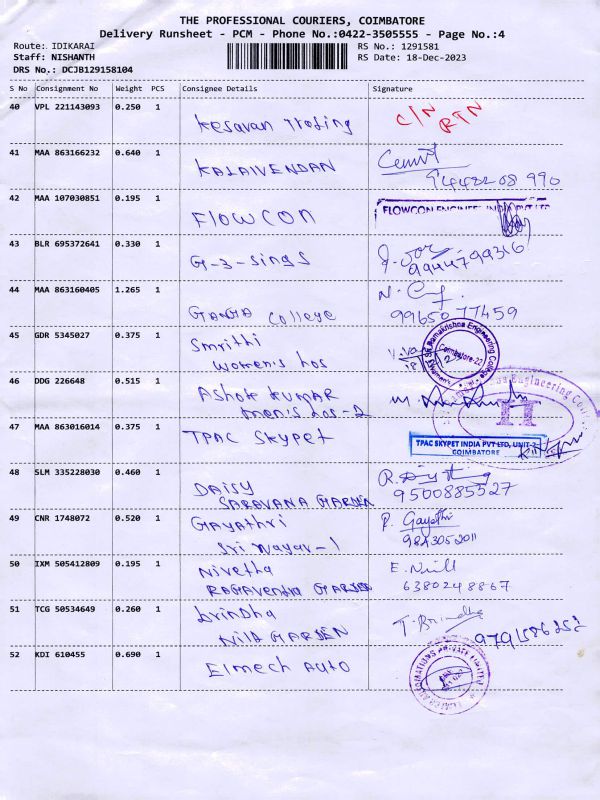 THE PROFESSIONAL COURIERS, COIMBATORE
Delivery Runsheet - PCM - Phone No.:0422-3505555 - Page No.:4
Route: IDIKARAI
RS No.: 1291581
Staff: NISHANTH
RS Date: 18-Dec-2023
DRS No.: DCJB129158104
S No Consignment No Weight PCS Consignee Details Signature
40 VPL 221143093 0.250 1
Kesavan Trading C/N RTN
41 MAA 863166232 0.640 1
KALAIVENDAN
94482 08 990
42 MAA 107030851 0.195 1
FLOWCON FLOWCON ENGINEE
43 BLR 695372641 0.330 1
G-3-Sings
9944799316
44 MAA 863160405 1.265 1
GANGA College 9965077459
45 GDR 5345027 0.375 1
Smrithi
Women's hos
Sri Ramakrishna Engineering College
Coimbatore-22
46 DDG 226648 0.515 1
Ashok KUMAR
men's hos-2
Engineering Coll
IT
47 MAA 863016014 0.375 1
TPAC SKYPET
TPAC SKYPET INDIA PVT LTD, UNIT-2
COIMBATORE
48 SLM 335228030 0.460 1
DAISY
SARAVANA GARDEN 9500885527
49 CNR 1748072 0.520 1
Gayathri R. Gayathri
Sri Nagar-1 9843052011
50 IXM 505412809 0.195 1
Nivetha
RAGAVendra GARDEN 6380248867
51 TCG 50534649 0.260 1
brindha T. Brindha
NILA GARDEN 9791586252
52 KDI 610455 0.690 1
Elmech Auto
AUTOMATIONS PRIVATE LIMITED